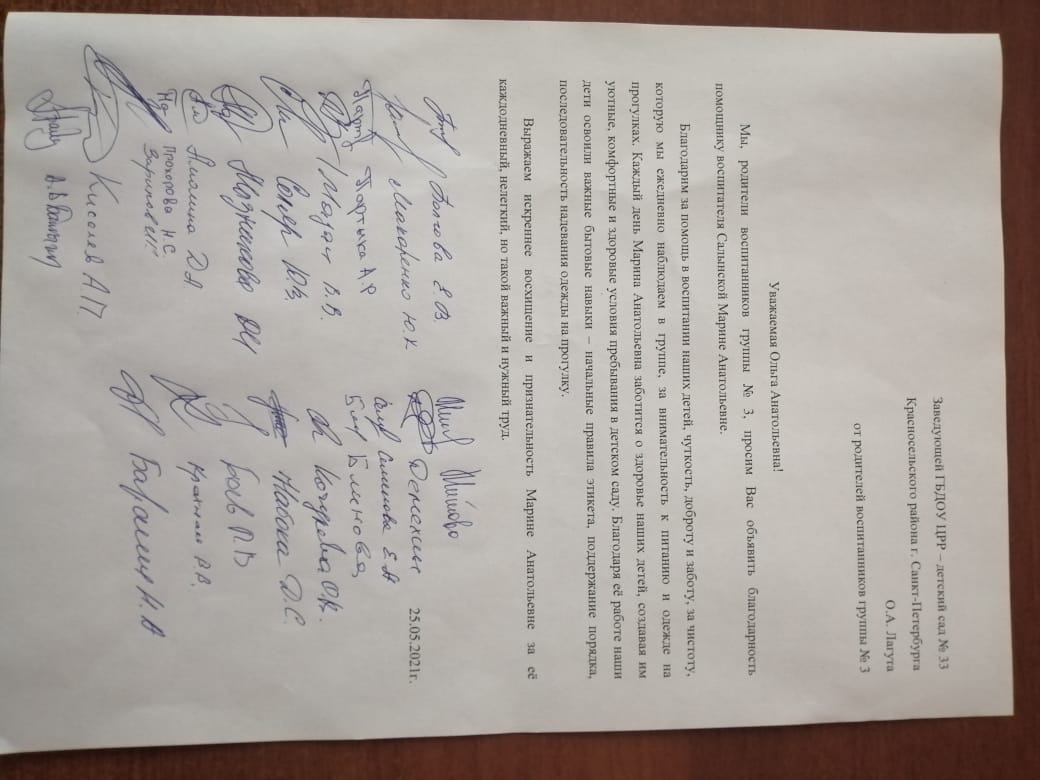 Заведующей ГБДОУ ЦРР – детский сад № 33
Красносельского района г. Санкт-Петербурга
О.А. Лагута
от родителей воспитанников группы № 3
Уважаемая Ольга Анатольевна!
Мы, родители воспитанников группы № 3, просим Вас объявить благодарность
помощнику воспитателя Салынской Марине Анатольевне.
Благодарим за помощь в воспитании наших детей, чуткость, доброту и заботу, за чистоту,
которую мы ежедневно наблюдаем в группе, за внимательность к питанию и одежде на
прогулках. Каждый день Марина Анатольевна заботится о здоровье наших детей, создавая им
уютные, комфортные и здоровые условия пребывания в детском саду. Благодаря её работе наши
дети освоили важные бытовые навыки – начальные правила этикета, поддержание порядка,
последовательность надевания одежды на прогулку.
Выражаем искреннее восхищение и признательность Марине Анатольевне за её
каждодневный, нелегкий, но такой важный и нужный труд.
25.05.2021г.
Макаренко Ю.К
Блинова
Кочурова О.К.
Набока Д.С.
Прохорова Н.С
Киселев А.П.